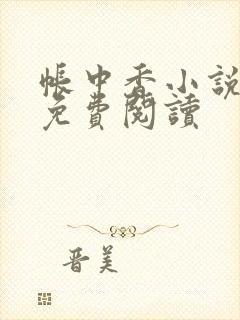 帳中香小說
免費閱讀
晋美